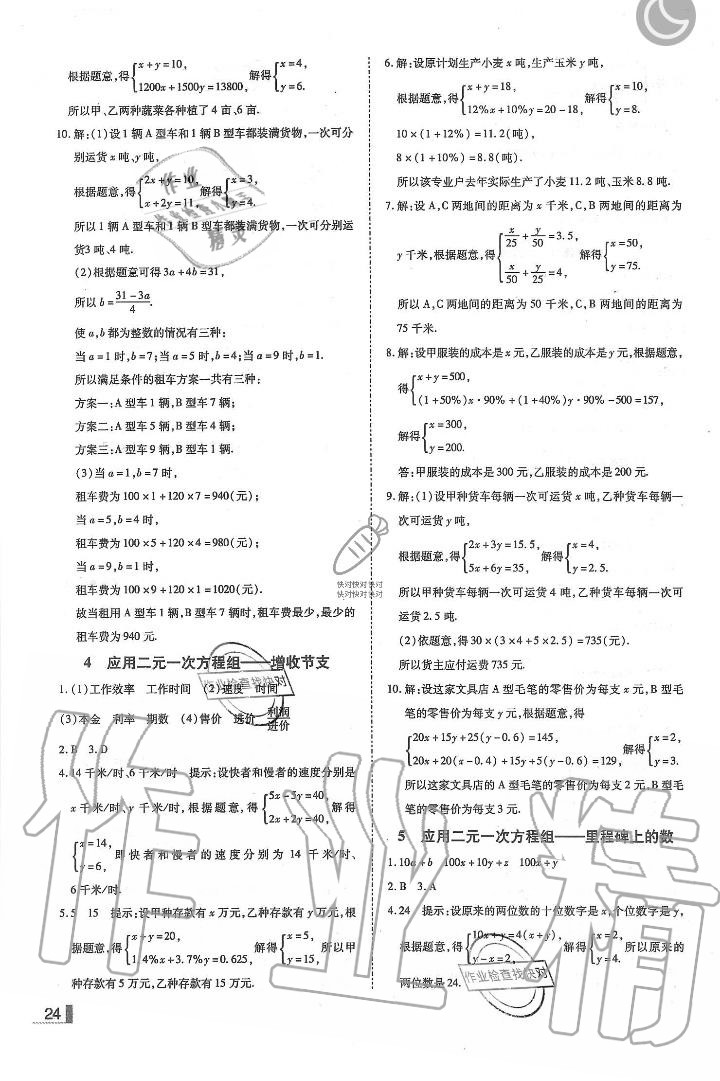 根据题意,得{x+y=10, 1200x+1500y=13800, 解得{x=4, y=6.
所以甲、乙两种蔬菜各种植了4亩、6亩.
10.解:(1)设1辆A型车和1辆B型车都装满货物,一次可分
别运货x吨、y吨,
根据题意,得{2x+y=10, x+2y=11, 解得{x=3, y=4.
所以1辆A型车和1辆B型车都装满货物,一次可分别运
货3吨、4吨.
(2)根据题意可得3a+4b=31,
所以b=(31-3a)/4.
使a,b都为整数的情况有三种:
当a=1时,b=7;当a=5时,b=4;当a=9时,b=1.
所以满足条件的租车方案一共有三种:
方案一:A型车1辆,B型车7辆;
方案二:A型车5辆,B型车4辆;
方案三:A型车9辆,B型车1辆.
(3)当a=1,b=7时,
租车费为100×1+120×7=940(元);
当a=5,b=4时,
租车费为100×5+120×4=980(元);
当a=9,b=1时,
租车费为100×9+120×1=1020(元).
故当租用A型车1辆,B型车7辆时,租车费最少,最少的
租车费为940元.
4 应用二元一次方程组——增收节支
1.(1)工作效率 工作时间 (2)速度 时间
(3)本金 利率 期数 (4)售价 进价 利润/进价
2.B 3.D
4.14千米/时、6千米/时 提示:设快者和慢者的速度分别是
x千米/时、y千米/时,根据题意,得{5x-5y=40, 2x+2y=40, 解得
{x=14, y=6, 即快者和慢者的速度分别为14千米/时、
6千米/时.
5.5 15 提示:设甲种存款有x万元,乙种存款有y万元,根
据题意,得{x+y=20, 1.4%x+3.7%y=0.625, 解得{x=5, y=15, 所以甲
种存款有5万元,乙种存款有15万元.
24
6.解:设原计划生产小麦x吨,生产玉米y吨,
根据题意,得{x+y=18, 12%x+10%y=20-18, 解得{x=10, y=8.
10×(1+12%)=11.2(吨),
8×(1+10%)=8.8(吨).
所以该专业户去年实际生产了小麦11.2吨、玉米8.8吨.
7.解:设A,C两地间的距离为x千米,C,B两地间的距离为
y千米,根据题意,得{x/25+y/50=3.5, x/50+y/25=4, 解得{x=50, y=75.
所以A,C两地间的距离为50千米,C,B两地间的距离为
75千米.
8.解:设甲服装的成本是x元,乙服装的成本是y元,根据题意,
得{x+y=500, (1+50%)x·90%+(1+40%)y·90%-500=157,
解得{x=300, y=200.
答:甲服装的成本是300元,乙服装的成本是200元.
9.解:(1)设甲种货车每辆一次可运货x吨,乙种货车每辆一
次可运货y吨,
根据题意,得{2x+3y=15.5, 5x+6y=35, 解得{x=4, y=2.5.
所以甲种货车每辆一次可运货4吨,乙种货车每辆一次可
运货2.5吨.
(2)依题意,得30×(3×4+5×2.5)=735(元).
所以货主应付运费735元.
10.解:设这家文具店A型毛笔的零售价为每支x元,B型毛
笔的零售价为每支y元,根据题意,得
{20x+15y+25(y-0.6)=145, 20x+20(x-0.4)+15y+5(y-0.6)=129, 解得{x=2, y=3.
所以这家文具店的A型毛笔的零售价为每支2元,B型毛
笔的零售价为每支3元.
5 应用二元一次方程组——里程碑上的数
1.10a+b 100x+10y+z 100x+y
2.B 3.A
4.24 提示:设原来的两位数的十位数字是x,个位数字是y,
根据题意,得{10x+y=4(x+y), y-x=2, 解得{x=2, y=4. 所以原来的
两位数是24.
快对快对快对
快对快对快对
作业检查找快对
作业检查找快对
作业精